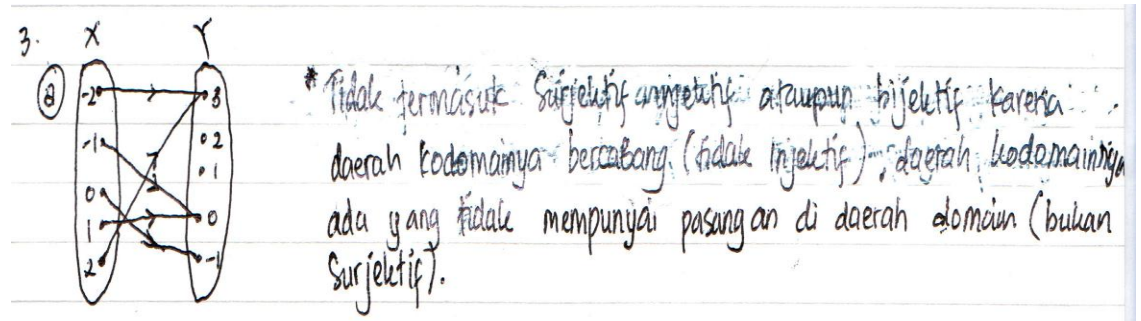 3. X Y
a
-2 3
-1 2
1
0 0
1 -1
2
* Tidak termasuk Surjektif, injektif ataupun bijektif karena
daerah kodomainya bercabang (tidak injektif), daerah kodomainnya
ada yang tidak mempunyai pasangan di daerah domain (bukan
Surjektif).